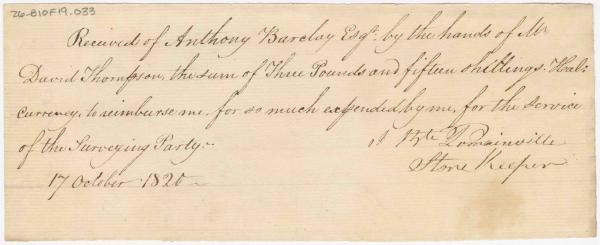 26-B10F19.033
Received of Anthony Barclay Esqr. by the hands of Mr
David Thompson, the sum of Three Pounds and fifteen shillings. Hal:
currency, to reimburse me, for so much expended by me, for the service
of the Surveying Party.-
Bte Romainville
Store Keeper
17 October 1820